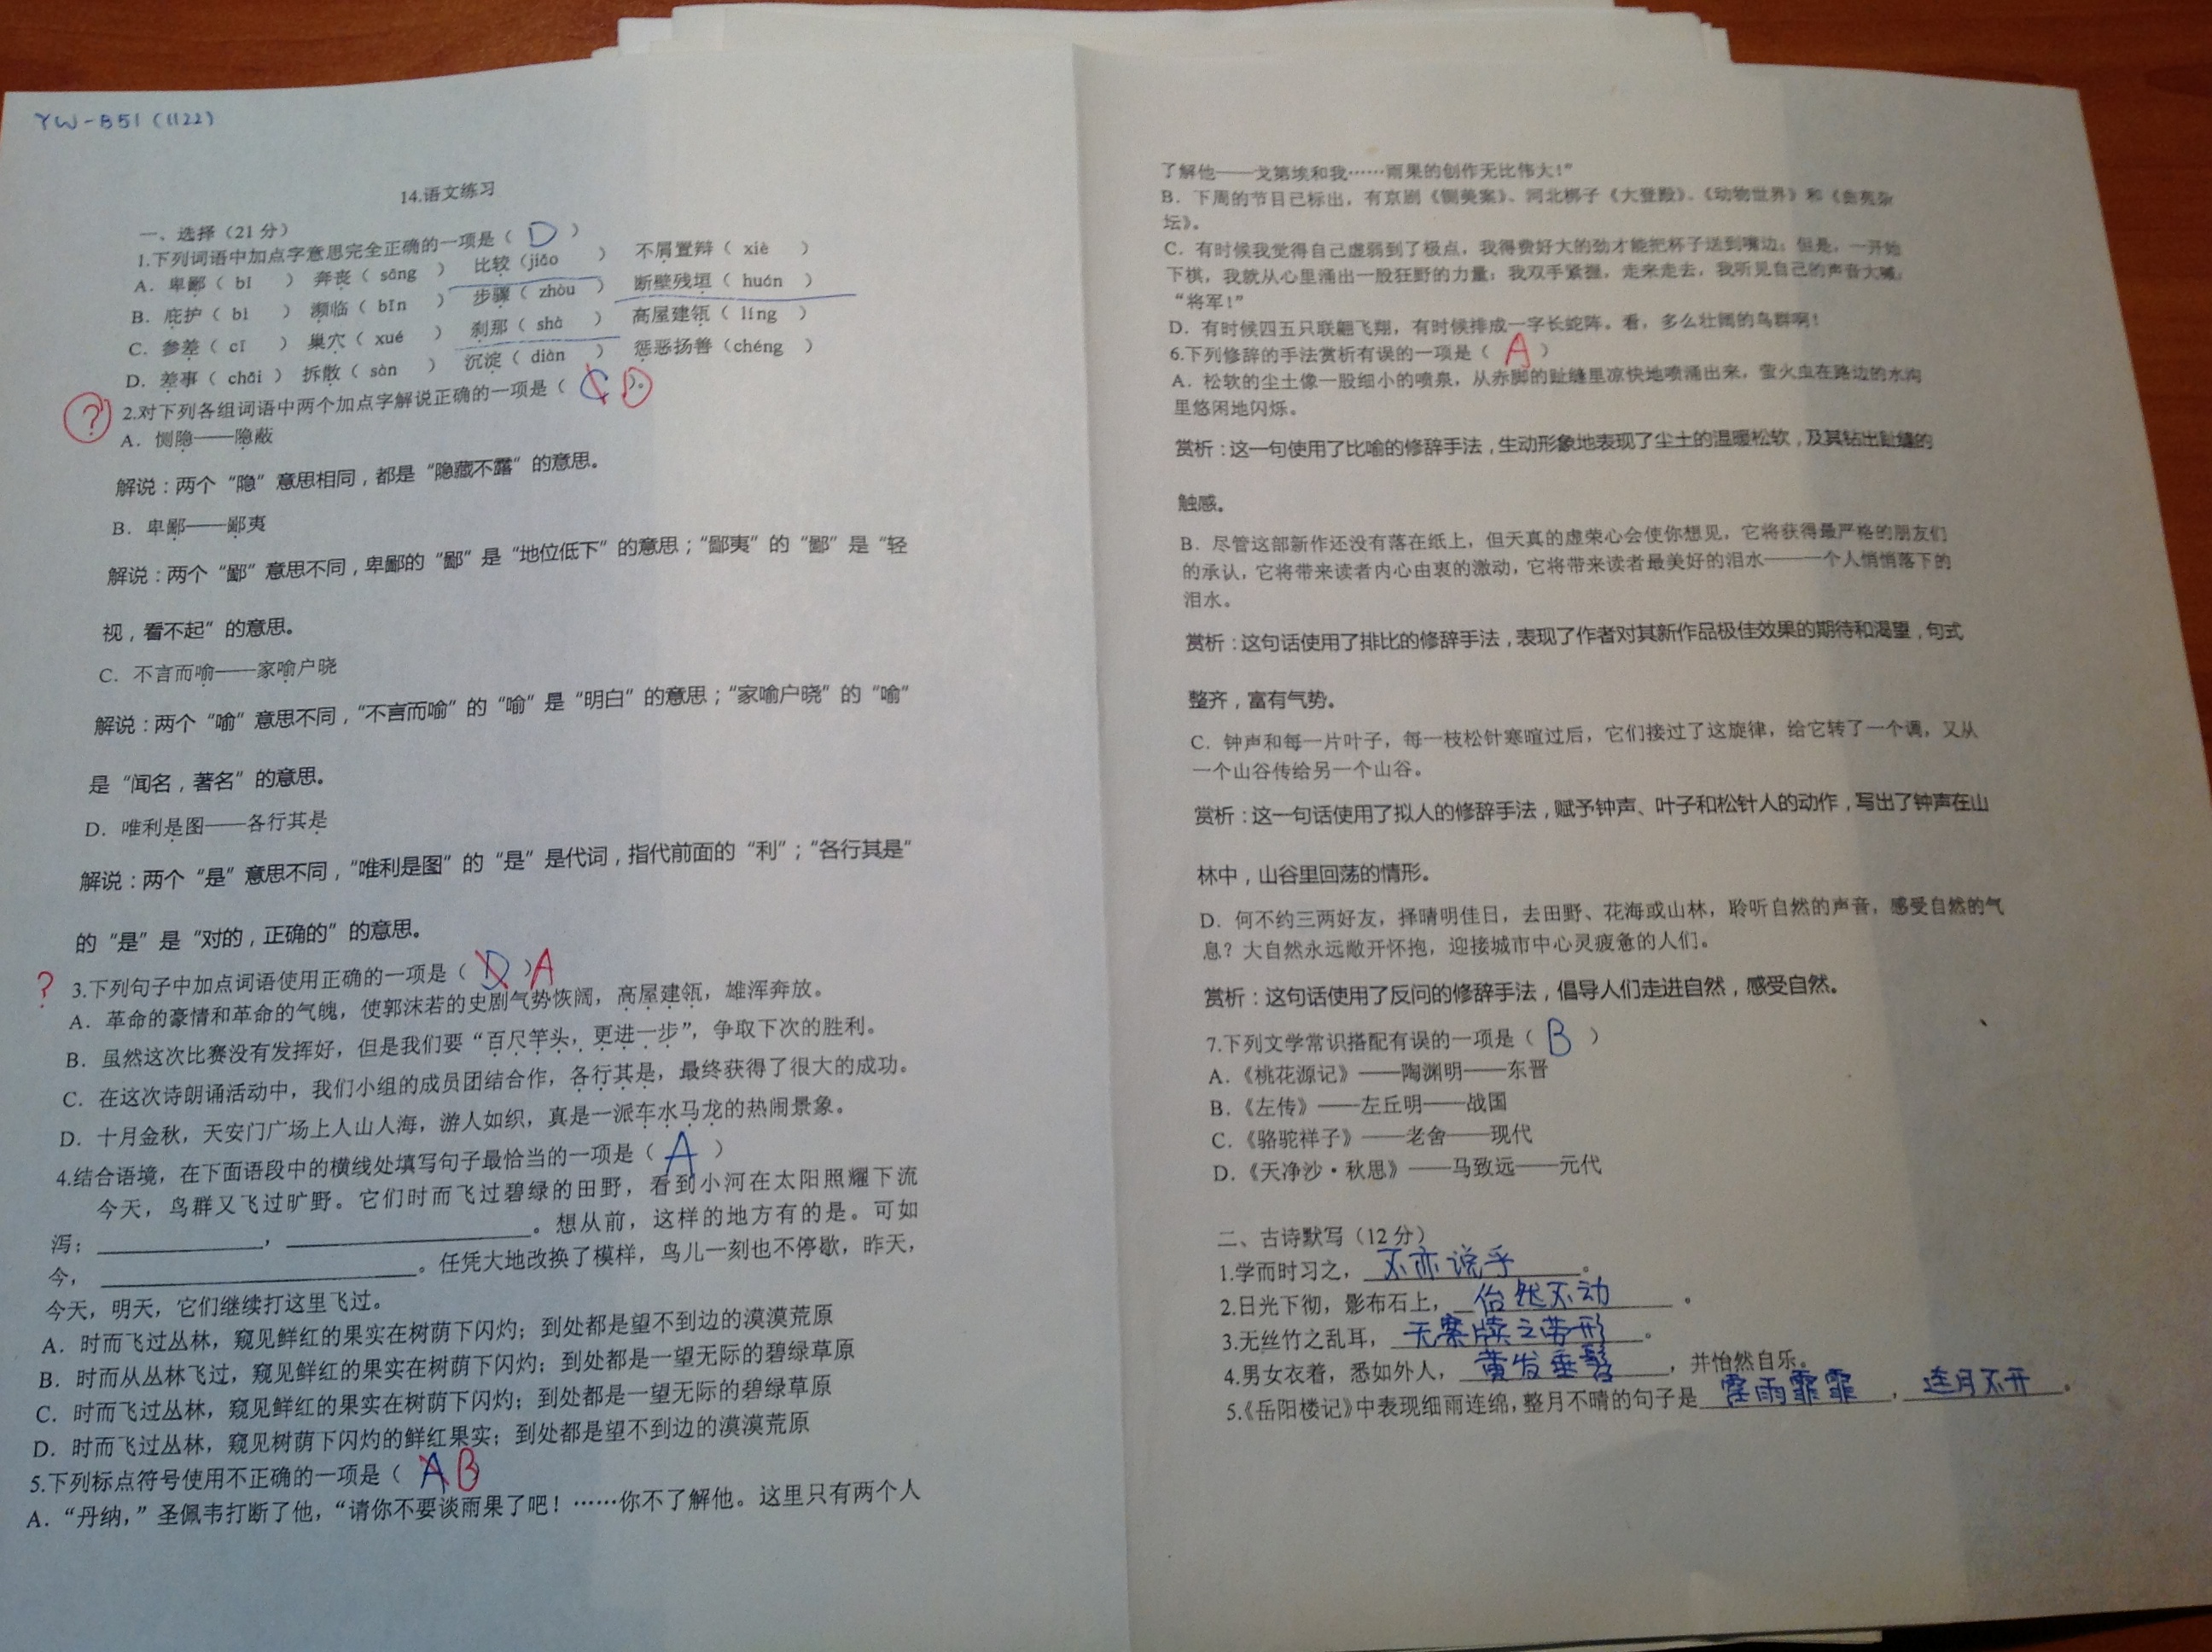 YW-B51(1122)
14.语文练习
一、选择（21分）
1.下列词语中加点字意思完全正确的一项是（ D ）
A．卑鄙（ bǐ ） 奔丧（ sāng ） 比较（jiǎo ） 不屑置辩（ xiè ）
B．庇护（ bì ） 濒临（ bīn ） 步骤（ zhòu ） 断壁残垣（ huán ）
C．参差（ cī ） 巢穴（ xué ） 刹那（ shà ） 高屋建瓴（ líng ）
D．差事（ chāi ） 拆散（ sàn ） 沉淀（ diàn ） 惩恶扬善（chéng ）
? 2.对下列各组词语中两个加点字解说正确的一项是（ C D ）。
A．恻隐——隐蔽
解说：两个“隐”意思相同，都是“隐藏不露”的意思。
B．卑鄙——鄙夷
解说：两个“鄙”意思不同，卑鄙的“鄙”是“地位低下”的意思；“鄙夷”的“鄙”是“轻
视，看不起”的意思。
C．不言而喻——家喻户晓
解说：两个“喻”意思不同，“不言而喻”的“喻”是“明白”的意思；“家喻户晓”的“喻”
是“闻名，著名”的意思。
D．唯利是图——各行其是
解说：两个“是”意思不同，“唯利是图”的“是”是代词，指代前面的“利”；“各行其是”
的“是”是“对的，正确的”的意思。
? 3.下列句子中加点词语使用正确的一项是（ D ）A
A．革命的豪情和革命的气魄，使郭沫若的史剧气势恢阔，高屋建瓴，雄浑奔放。
B．虽然这次比赛没有发挥好，但是我们要“百尺竿头，更进一步”，争取下次的胜利。
C．在这次诗朗诵活动中，我们小组的成员团结合作，各行其是，最终获得了很大的成功。
D．十月金秋，天安门广场上人山人海，游人如织，真是一派车水马龙的热闹景象。
4.结合语境，在下面语段中的横线处填写句子最恰当的一项是（ A ）
今天，鸟群又飞过旷野。它们时而飞过碧绿的田野，看到小河在太阳照耀下流
泻；____________，____________。想从前，这样的地方有的是。可如
今，____________。任凭大地改换了模样，鸟儿一刻也不停歇，昨天，
今天，明天，它们继续打这里飞过。
A．时而飞过丛林，窥见鲜红的果实在树荫下闪灼；到处都是望不到边的漠漠荒原
B．时而从丛林飞过，窥见鲜红的果实在树荫下闪灼；到处都是一望无际的碧绿草原
C．时而飞过丛林，窥见鲜红的果实在树荫下闪灼；到处都是一望无际的碧绿草原
D．时而飞过丛林，窥见树荫下闪灼的鲜红果实；到处都是望不到边的漠漠荒原
5.下列标点符号使用不正确的一项是（ A B
A．“丹纳，”圣佩韦打断了他，“请你不要谈雨果了吧！……你不了解他。这里只有两个人
了解他——戈第埃和我……雨果的创作无比伟大！”
B．下周的节目已标出，有京剧《铡美案》、河北梆子《大登殿》、《动物世界》和《曲苑杂
坛》。
C．有时候我觉得自己虚弱到了极点，我得费好大的劲才能把杯子送到嘴边；但是，一开始
下棋，我就从心里涌出一股狂野的力量；我双手紧握，走来走去，我听见自己的声音大喊，
“将军！”
D．有时候四五只联翩飞翔，有时候排成一字长蛇阵。看，多么壮阔的鸟群啊！
6.下列修辞的手法赏析有误的一项是（ A ）
A．松软的尘土像一股细小的喷泉，从赤脚的趾缝里凉快地喷涌出来，萤火虫在路边的水沟
里悠闲地闪烁。
赏析：这一句使用了比喻的修辞手法，生动形象地表现了尘土的温暖松软，及其钻出趾缝的
触感。
B．尽管这部新作还没有落在纸上，但天真的虚荣心会使你想见，它将获得最严格的朋友们
的承认，它将带来读者内心由衷的激动，它将带来读者最美好的泪水——一个人悄悄落下的
泪水。
赏析：这句话使用了排比的修辞手法，表现了作者对其新作品极佳效果的期待和渴望，句式
整齐，富有气势。
C．钟声和每一片叶子，每一枝松针寒暄过后，它们接过了这旋律，给它转了一个调，又从
一个山谷传给另一个山谷。
赏析：这一句话使用了拟人的修辞手法，赋予钟声、叶子和松针人的动作，写出了钟声在山
林中，山谷里回荡的情形。
D．何不约三两好友，择晴明佳日，去田野、花海或山林，聆听自然的声音，感受自然的气
息？大自然永远敞开怀抱，迎接城市中心灵疲惫的人们。
赏析：这句话使用了反问的修辞手法，倡导人们走进自然，感受自然。
7.下列文学常识搭配有误的一项是（ B ）
A．《桃花源记》——陶渊明——东晋
B．《左传》——左丘明——战国
C．《骆驼祥子》——老舍——现代
D．《天净沙·秋思》——马致远——元代
二、古诗默写（12分）
1.学而时习之，不亦说乎。
2.日光下彻，影布石上，佁然不动。
3.无丝竹之乱耳，无案牍之劳形。
4.男女衣着，悉如外人，黄发垂髫，并怡然自乐。
5.《岳阳楼记》中表现细雨连绵，整月不晴的句子是霪雨霏霏，连月不开。